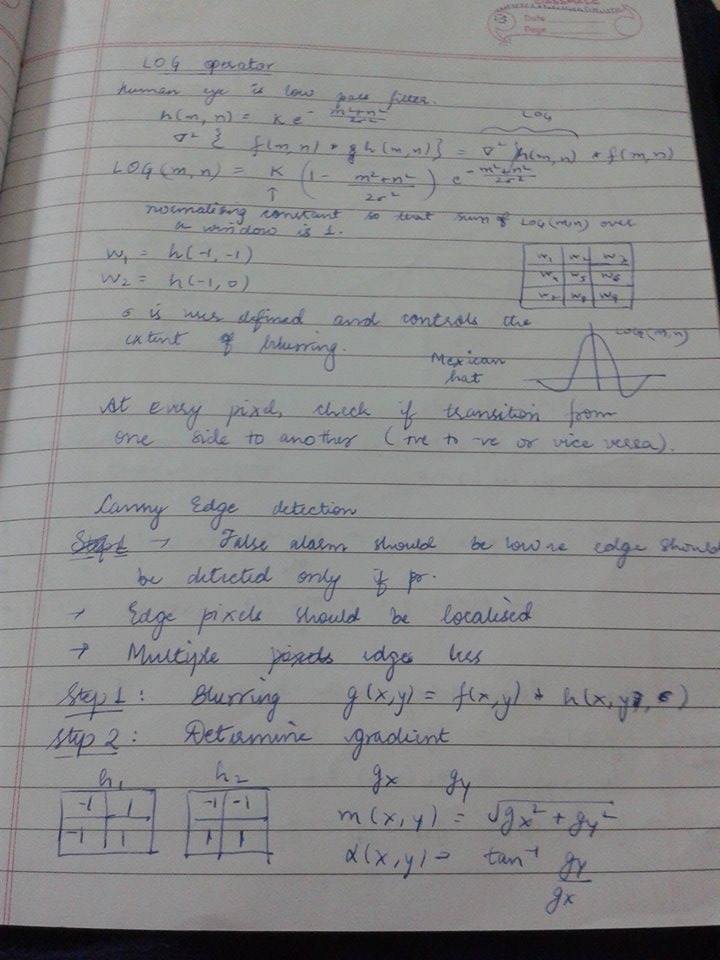 CLASSMATE
Date
Page
LOG operator
Human eye is low pass filter.
h(m, n) = k e^-(m²+n²)/2σ²
LOG
∇² { f(m, n) * g h(m, n)} = ∇² h(m, n) * f(m, n)
LOG(m, n) = K (1 - (m²+n²)/2σ²) e^-(m²+n²)/2σ²
↑
normalising constant so that sum of LOG(m,n) over
a window is 1.
w₁ = h(-1, -1)
w₂ = h(-1, 0)
w₁ w₂ w₃
w₄ w₅ w₆
w₇ w₈ w₉
σ is user defined and controls the
extent of blurring.
LOG(m,n)
Mexican
hat
At every pixel, check if transition from
one side to another (+ve to -ve or vice versa).
Canny Edge detection
Step1 → False alarm should be low ie edge should
be detected only if pr.
→ Edge pixels should be localised
→ Multiple pixels edges
Step 1: Blurring g(x,y) = f(x,y) * h(x,y, σ)
Step 2: Determine gradient
h₁ h₂ gx gy
-1 1 -1 -1
-1 1 1 1
m(x,y) = √gx² + gy²
α(x,y) = tan⁻¹ gy/gx